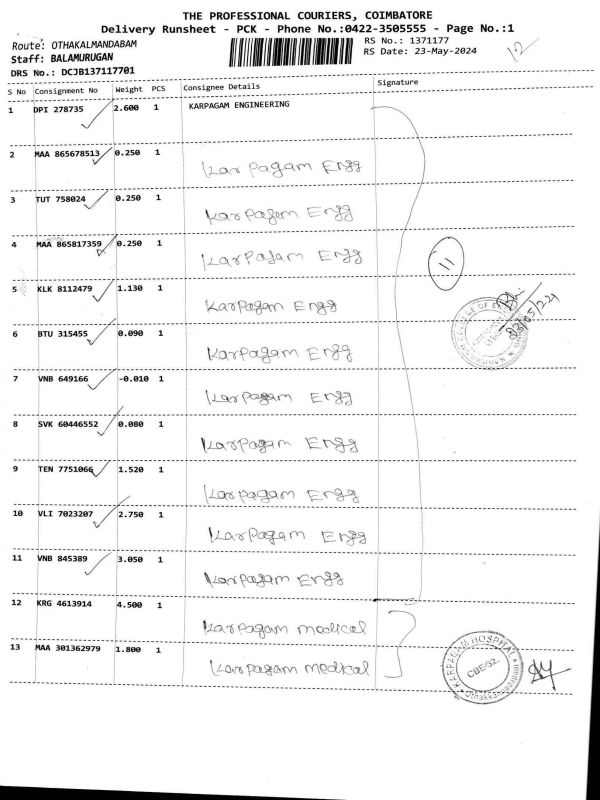 THE PROFESSIONAL COURIERS, COIMBATORE
Delivery Runsheet - PCK - Phone No.:0422-3505555 - Page No.:1
Route: OTHAKALMANDABAM
RS No.: 1371177
Staff: BALAMURUGAN
RS Date: 23-May-2024
12
DRS No.: DCJB137117701
S No Consignment No Weight PCS Consignee Details Signature
1 DPI 278735 2.600 1 KARPAGAM ENGINEERING
2 MAA 865678513 0.250 1 Karpagam Engg
3 TUT 758024 0.250 1 Karpagam Engg
4 MAA 865817359 0.250 1 Karpagam Engg
11
5 KLK 8112479 1.130 1 Karpagam Engg
23/05/224
6 BTU 315455 0.090 1 Karpagam Engg
7 VNB 649166 -0.010 1 Karpagam Engg
8 SVK 60446552 0.080 1 Karpagam Engg
9 TEN 7751066 1.520 1 Karpagam Engg
10 VLI 7023207 2.750 1 Karpagam Engg
11 VNB 845389 3.050 1 Karpagam Engg
12 KRG 4613914 4.500 1 Karpagam medical
13 MAA 301362979 1.800 1 Karpagam medical
KARPAGAM HOSPITAL
CBE-32.